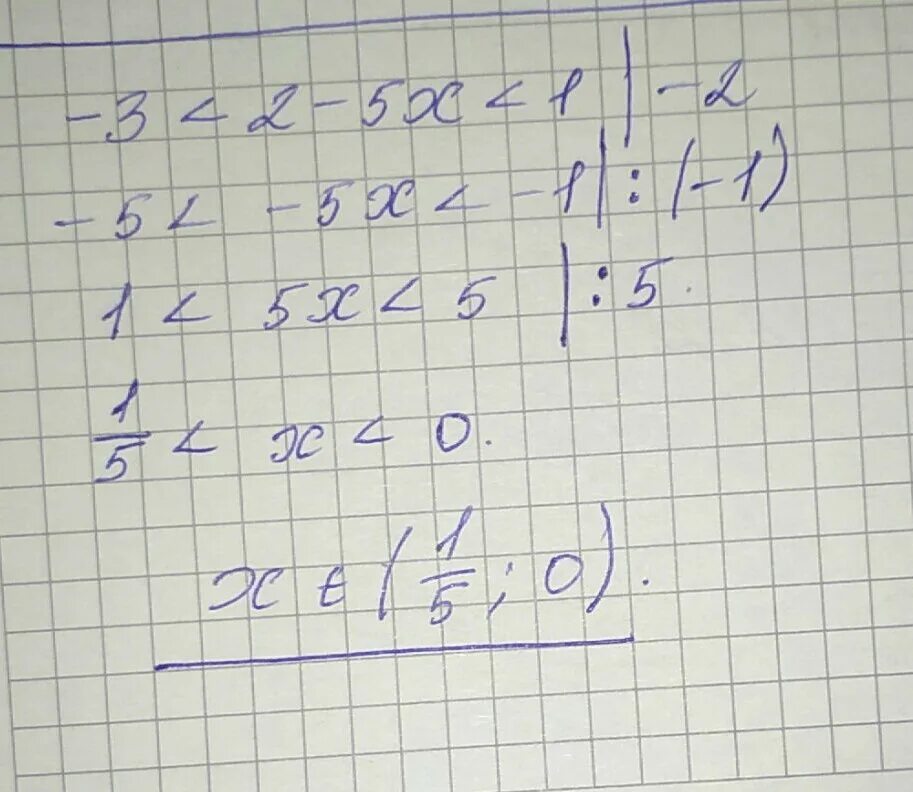 -3 < 2 - 5x < 1 | -2
-5 < -5x < -1 | : (-1)
1 < 5x < 5 | : 5.
1/5 < x < 0.
x ∈ (1/5 ; 0).